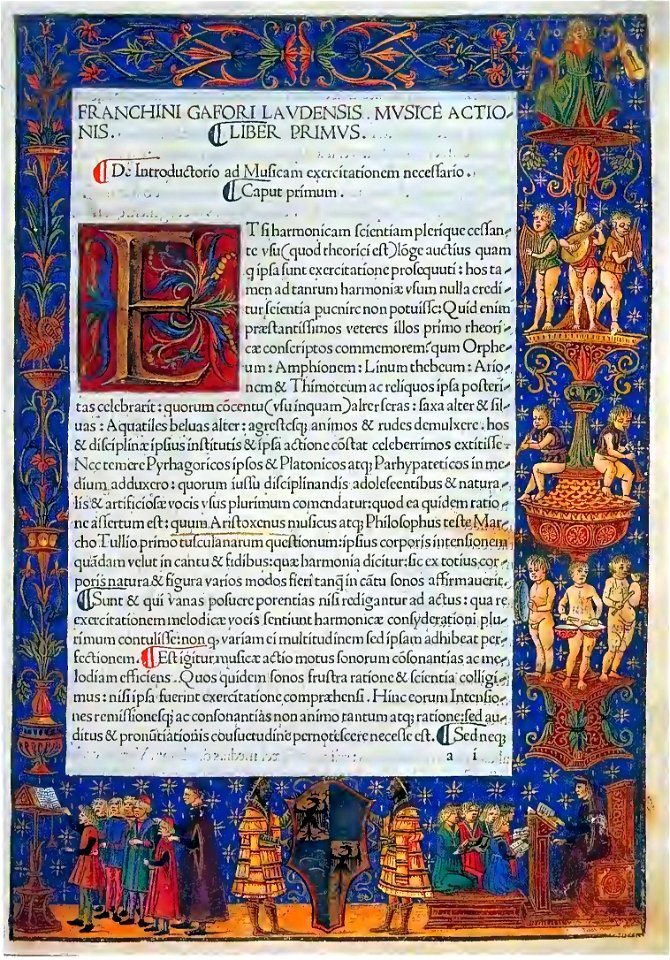 FRANCHINI GAFORI LAVDENSIS . MVSICE ACTIO-
NIS. ⸿LIBER PRIMVS.
⸿De Introductorio ad Muſicam exercitationem neceſſario.
⸿Caput primum.
ETſi harmonicam ſcientiam plerique ceſſan-
te vſu (quod theorici eſt) lõge auctius quam
q ipſa ſunt exercitatione proſequuti: hos ta-
men ad tantum harmoniæ vſum nulla credi-
tur ſcientia pucnire non potuiſſe: Quid enim
præſtantiſſimos veteres illos primo theori-
cæ conſcriptos commemorem: qum Orphe-
um: Amphionem: Linum thebeum: Ario-
nem & Thimoteum ac reliquos ipſa poſteri-
tas celebrarit: quorum cõcentu (vſu inquam) alter feras: ſaxa alter & ſil-
uas: Aquatiles beluas alter: agreſteſq; animos & rudes demulxere. hos
& diſciplinæ ipſius inſtitutis & ipſa actione cõſtat celeberrimos extitiſſe.
Nec temere Pythagoricos ipſos & Platonicos atq; Parhypateticos in me-
dium adduxero: quorum iuſſu diſciplinandis adoleſcentibus & natura-
lis & artificioſæ vocis vſus plurimum comendatur: quod ea quidem ratio-
ne aſſertum eſt: quum Ariſtoxenus muſicus atq; Philoſophus teſte Mar-
cho Tullio primo tuſculanarum queſtionum: ipſius corporis intenſionem
quãdam velut in cantu & fidibus: quæ harmonia dicitur: ſic ex totius cor-
poris natura & figura varios modos fieri tanq̃ in cãtu ſonos affirmauerit.
⸿Sunt & qui vanas poſuere potentias niſi redigantur ad actus: qua re
exercitationem melodicæ vocis ſentiunt harmonicæ conſyderationi plu-
rimum contuliſſe: non q variam ei multitudinem ſed ipſam adhibeat per-
fectionem. ⸿Eſt igitur muſicæ actio motus ſonorum cõſonantias ac me-
lodiam efficiens. Quos quidem ſonos fruſtra ratione & ſcientia colligi-
mus: niſi ipſa fuerint exercitatione compræhenſi. Hinc eorum Intenſio-
nes remiſſioneſq; ac conſonantias non animo tantum atq; ratione: ſed au-
ditus & pronũtiationis conſuetudine pernoteſcere neceſſe eſt. ⸿Sed neq;
a i